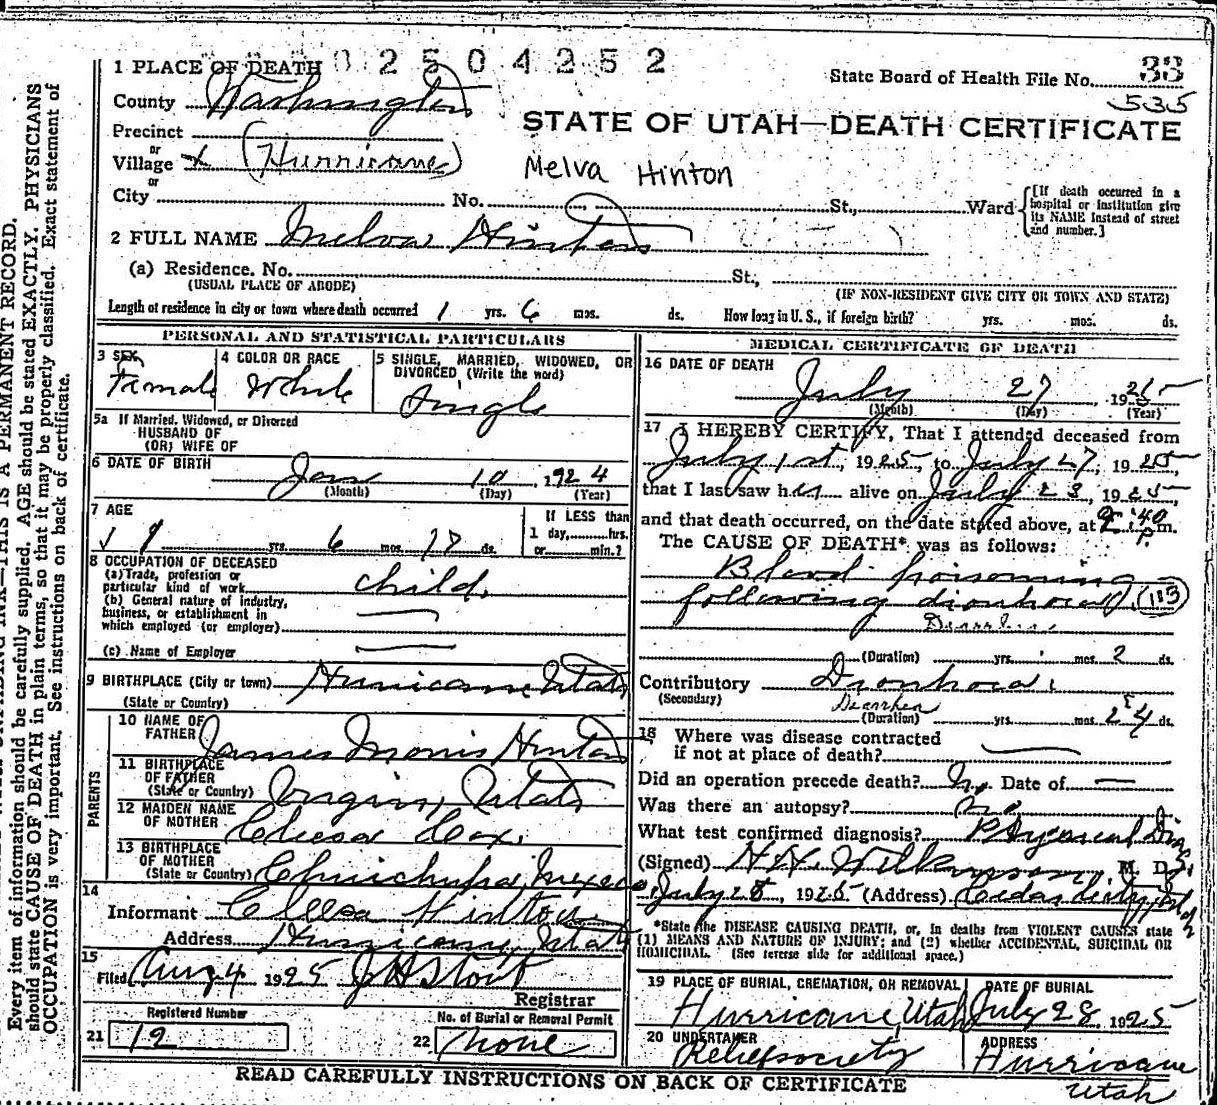 02504252
1 PLACE OF DEATH
State Board of Health File No. 33
535
County Washington
STATE OF UTAH—DEATH CERTIFICATE
Precinct
or
Village x (Hurricane)
Melva Hinton
or
City No. St., Ward {[If death occurred in a hospital or institution give its NAME instead of street and number.]
2 FULL NAME Melva Hinton
(a) Residence. No. St.,
(USUAL PLACE OF ABODE) (IF NON-RESIDENT GIVE CITY OR TOWN AND STATE)
Length of residence in city or town where death occurred 1 yrs. 6 mos. ds. How long in U. S., if foreign birth? yrs. mos. ds.
PERSONAL AND STATISTICAL PARTICULARS
3 SEX
Female
4 COLOR OR RACE
White
5 SINGLE, MARRIED, WIDOWED, OR DIVORCED (Write the word)
Single
5a If Married, Widowed, or Divorced
HUSBAND OF
(OR) WIFE OF
6 DATE OF BIRTH
Jan 10, 1924
(Month) (Day) (Year)
7 AGE
1 yrs. 6 mos. 17 ds.
If LESS than
1 day, hrs.
or min.?
8 OCCUPATION OF DECEASED
(a) Trade, profession or
particular kind of work child
(b) General nature of industry,
business, or establishment in
which employed (or employer)
(c) Name of Employer
9 BIRTHPLACE (City or town) Hurricane Utah
(State or Country)
PARENTS
10 NAME OF
FATHER James Morris Hinton
11 BIRTHPLACE
OF FATHER
(State or Country) Virgin, Utah
12 MAIDEN NAME
OF MOTHER
13 BIRTHPLACE
OF MOTHER
(State or Country) Mexico
14
Informant Hinton
Address Hurricane, Utah
15
Filed Aug 4 1925 J H Stout
Registrar
Registered Number
21 12
No. of Burial or Removal Permit
22 none
MEDICAL CERTIFICATE OF DEATH
16 DATE OF DEATH
July 27 1925
(Month) (Day) (Year)
17 I HEREBY CERTIFY, That I attended deceased from
July 1st, 1925, to July 27, 1925,
that I last saw her alive on July 23, 1925,
and that death occurred, on the date stated above, at 2:40 P. m.
The CAUSE OF DEATH* was as follows:
Blood poisoning
following 113
(Duration) yrs. mos. 2 ds.
Contributory
(Secondary)
Diarrhea
(Duration) yrs. mos. 24 ds.
18 Where was disease contracted
if not at place of death?
Did an operation precede death? No Date of
Was there an autopsy? No
What test confirmed diagnosis? Physical
(Signed) Wilkinson, M. D.
July 28, 1925 (Address) Cedar City, Utah
*State the DISEASE CAUSING DEATH, or, in deaths from VIOLENT CAUSES state
(1) MEANS AND NATURE OF INJURY; and (2) whether ACCIDENTAL, SUICIDAL OR
HOMICIDAL. (See reverse side for additional space.)
19 PLACE OF BURIAL, CREMATION, OR REMOVAL
Hurricane, Utah
DATE OF BURIAL
July 28 1925
20 UNDERTAKER
Relief society
ADDRESS
Hurricane
Utah
READ CAREFULLY INSTRUCTIONS ON BACK OF CERTIFICATE
THIS IS A PERMANENT RECORD.
Every item of information should be carefully supplied. AGE should be stated EXACTLY. PHYSICIANS
should state CAUSE OF DEATH in plain terms, so that it may be properly classified. Exact statement of
OCCUPATION is very important. See instructions on back of certificate.